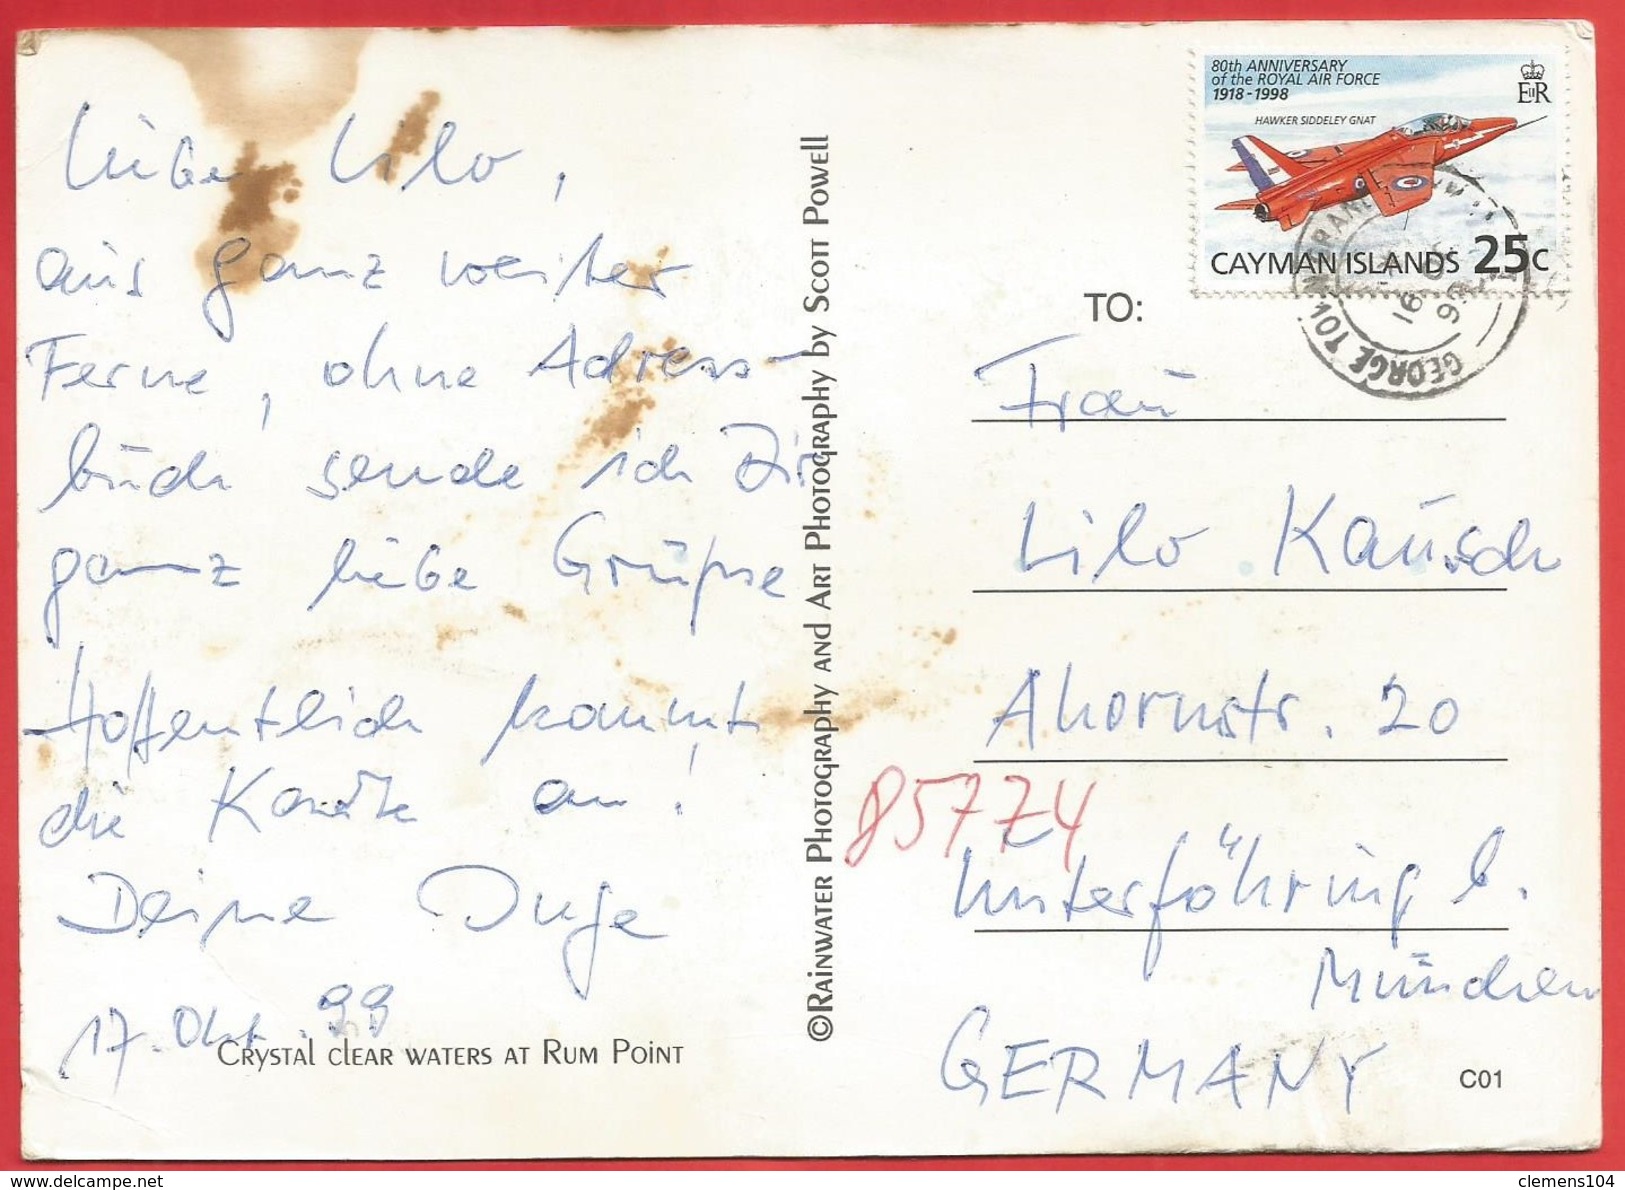 Liebe Lilo,
aus ganz weiter
Ferne, ohne Adress-
buch sende ich Dir
ganz liebe Grüße
Hoffentlich kommt
die Karte an!
Deine Inge
17. Okt. 99
CRYSTAL CLEAR WATERS AT RUM POINT
©RAINWATER PHOTOGRAPHY AND ART PHOTOGRAPHY by SCOTT POWELL
80th ANNIVERSARY
of the ROYAL AIR FORCE
1918-1998
EIIR
HAWKER SIDDELEY GNAT
CAYMAN ISLANDS 25c
GEORGE TOWN GRAND
16
99
TO:
Frau
Lilo Kausch
Ahornstr. 20
85774
Unterföhring b.
München
GERMANY
C01
delcampe.net
clemens104